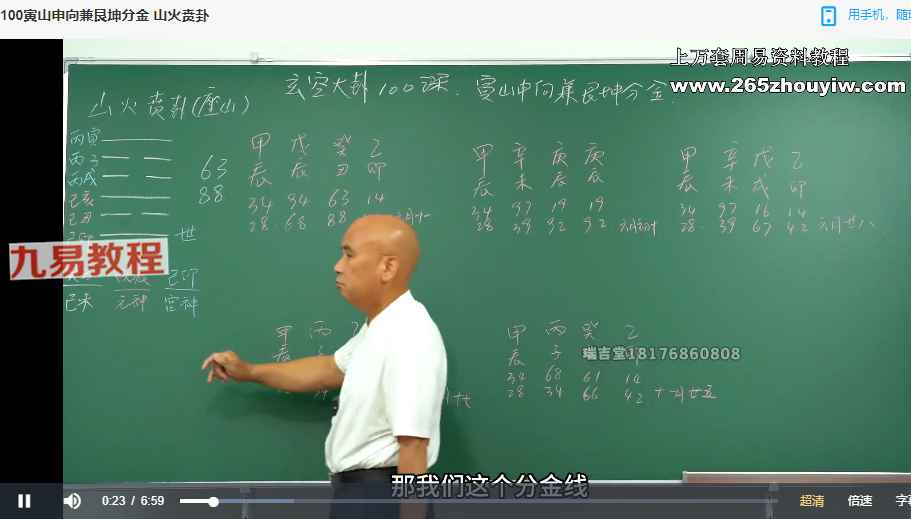 100寅山申向兼艮坤分金 山火贲卦
用手机，随
上万套周易资料教程
www.265zhouyiw.com
玄空大卦100课.寅山申向兼艮坤分金.
山火贲卦(座山)
丙寅
丙子
丙戌
己亥
己丑
世
63
88
甲 戊 癸 乙
辰 辰 丑 卯
34 94 63 14
28 68 88
甲 辛 庚 庚
辰 未 辰 辰
34 97 19 19
28 39 92 92
甲 辛 戊 乙
辰 未 戌 卯
34 97 16 14
28 39 67 42 六月廿八
九易教程
己卯
己未 元神 宫神
甲 丙
辰
甲 丙 癸 乙
辰 子
34 68 61 14
28 34 66 42 十一月廿五
瑞吉堂18176860808
那我们这个分金线
0:23 / 6:59
超清
倍速
字